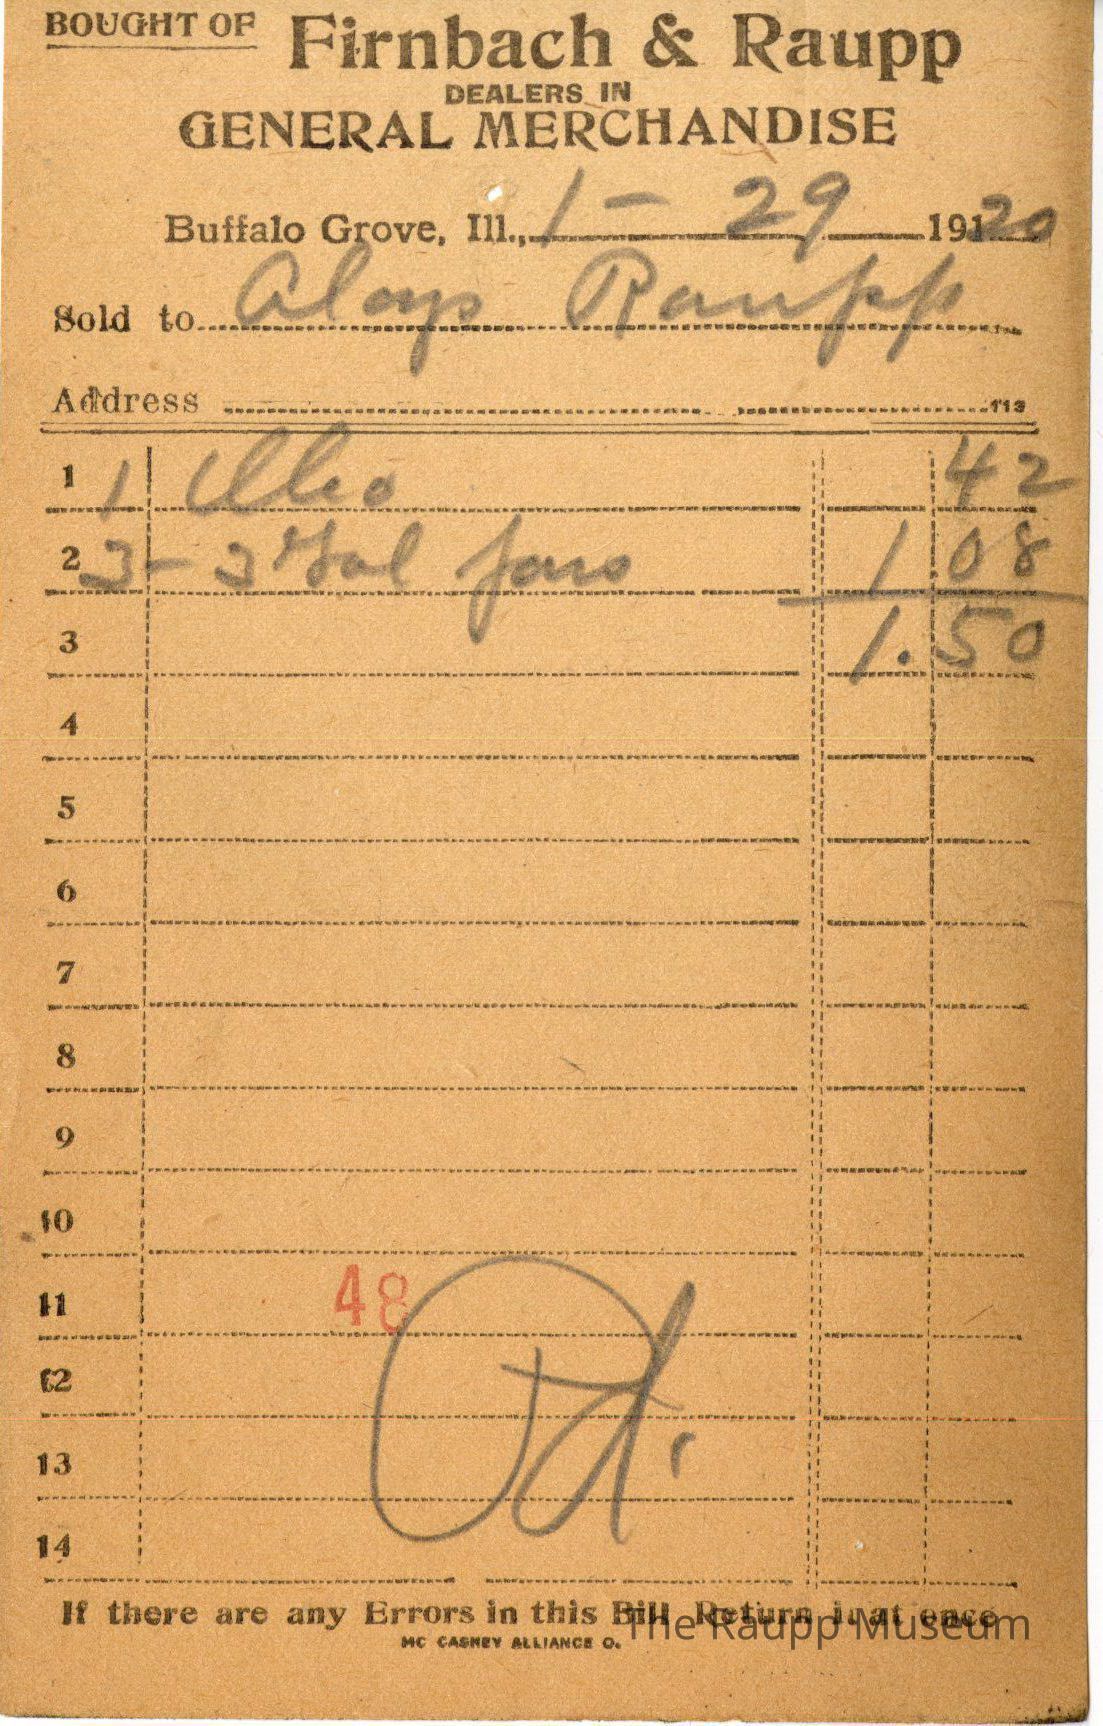 BOUGHT OF Firnbach & Raupp
DEALERS IN
GENERAL MERCHANDISE
Buffalo Grove, Ill., 1 - 29 19120
Sold to Aloys Raupp
Address 113
1 1 Oleo 42
2 3 - 3 Gal Jars 1.08
3 1.50
4
5
6
7
8
9
10
11 48
12
13
14
Pd.
If there are any Errors in this Bill Return it at once
MC CASKEY ALLIANCE O.
The Raupp Museum